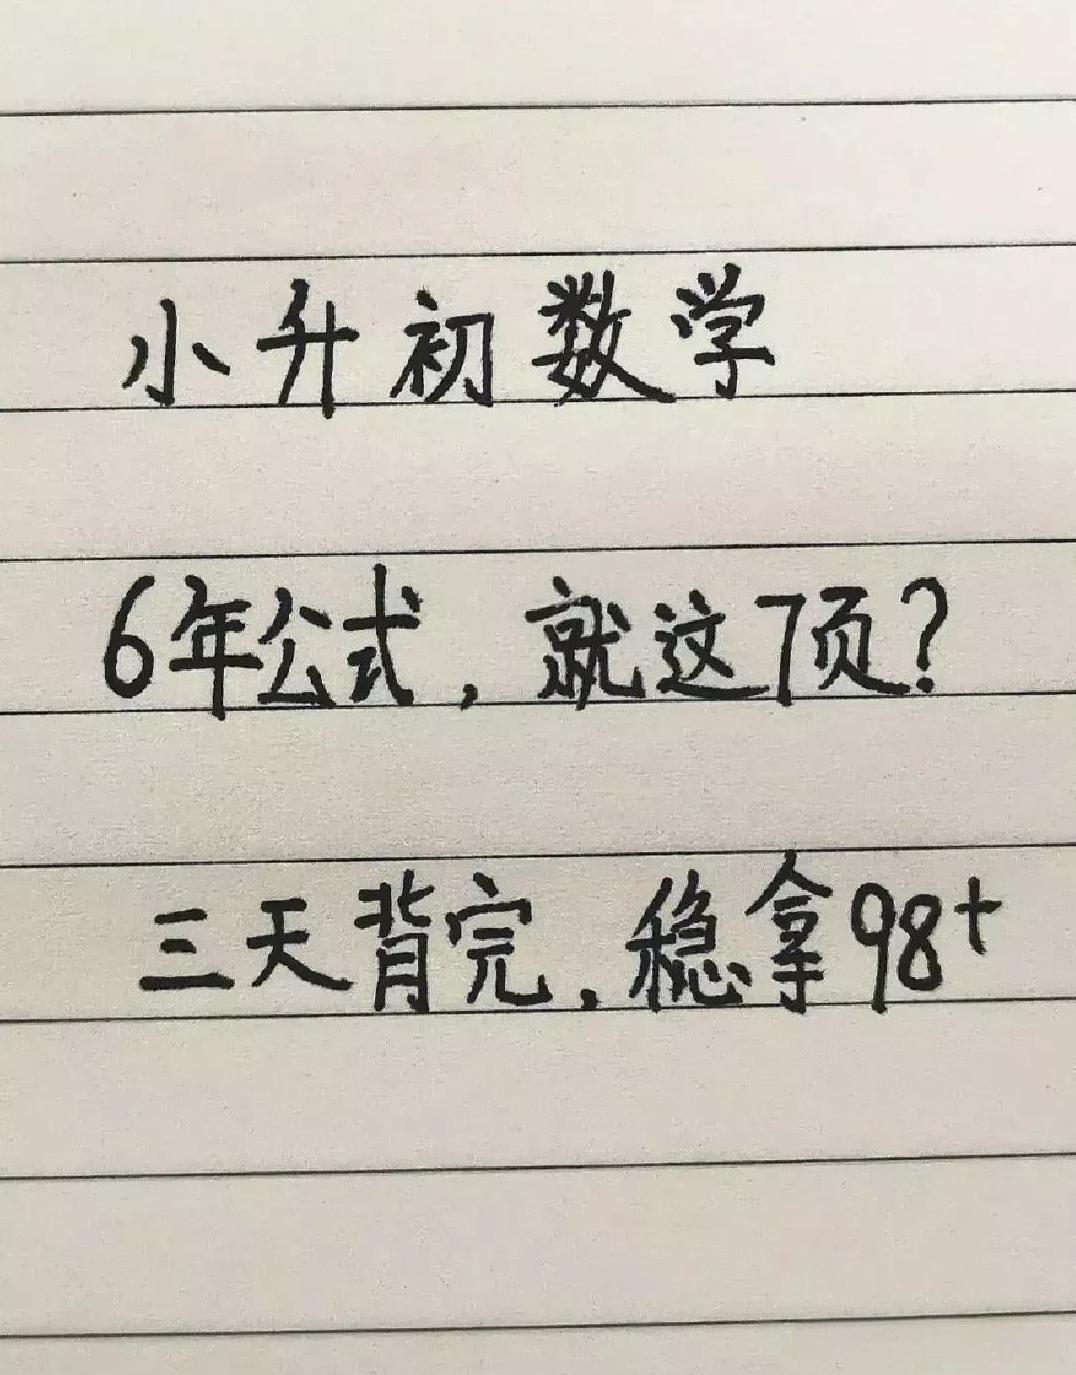 小升初数学
6年公式，就这7页？
三天背完，稳拿98+